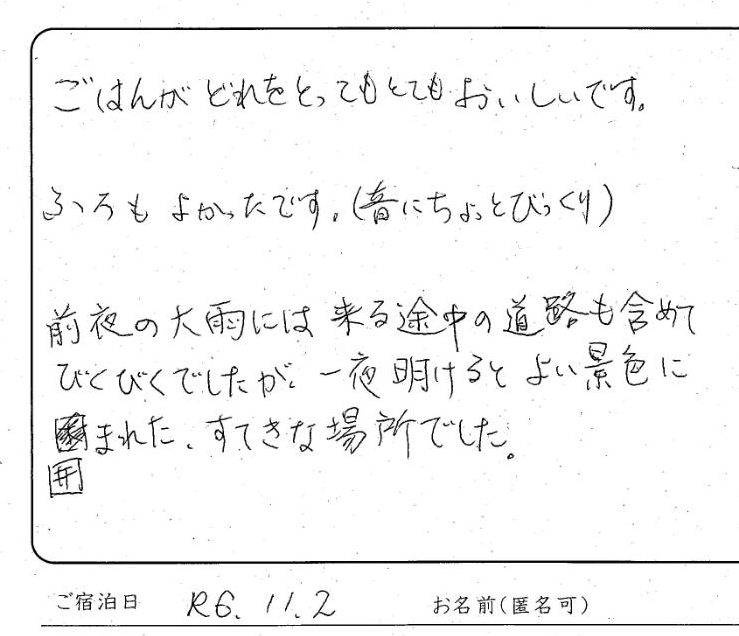 ごはんがどれをとってもとてもおいしいです。
ふろもよかったです。(音にちょっとびっくり)
前夜の大雨には来る途中の道路も含めて
びくびくでしたが、一夜明けるとよい景色に
まれた、すてきな場所でした。
囲
ご宿泊日 R6.11.2 お名前(匿名可)